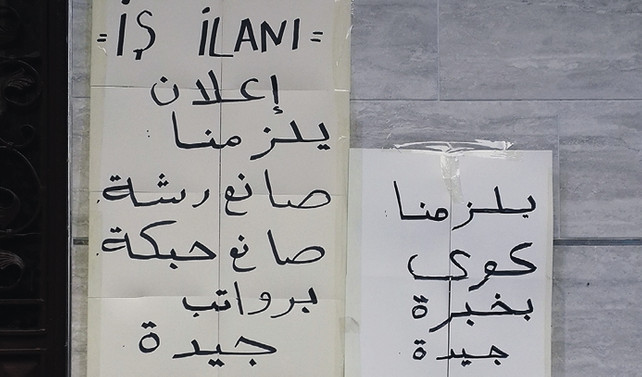 =İŞ İLANI=
إعلان
يلزمنا:
صانع رشة
صانع حبكة
برواتب
جيدة
يلزمنا
كوى
بخبرة
جيدة